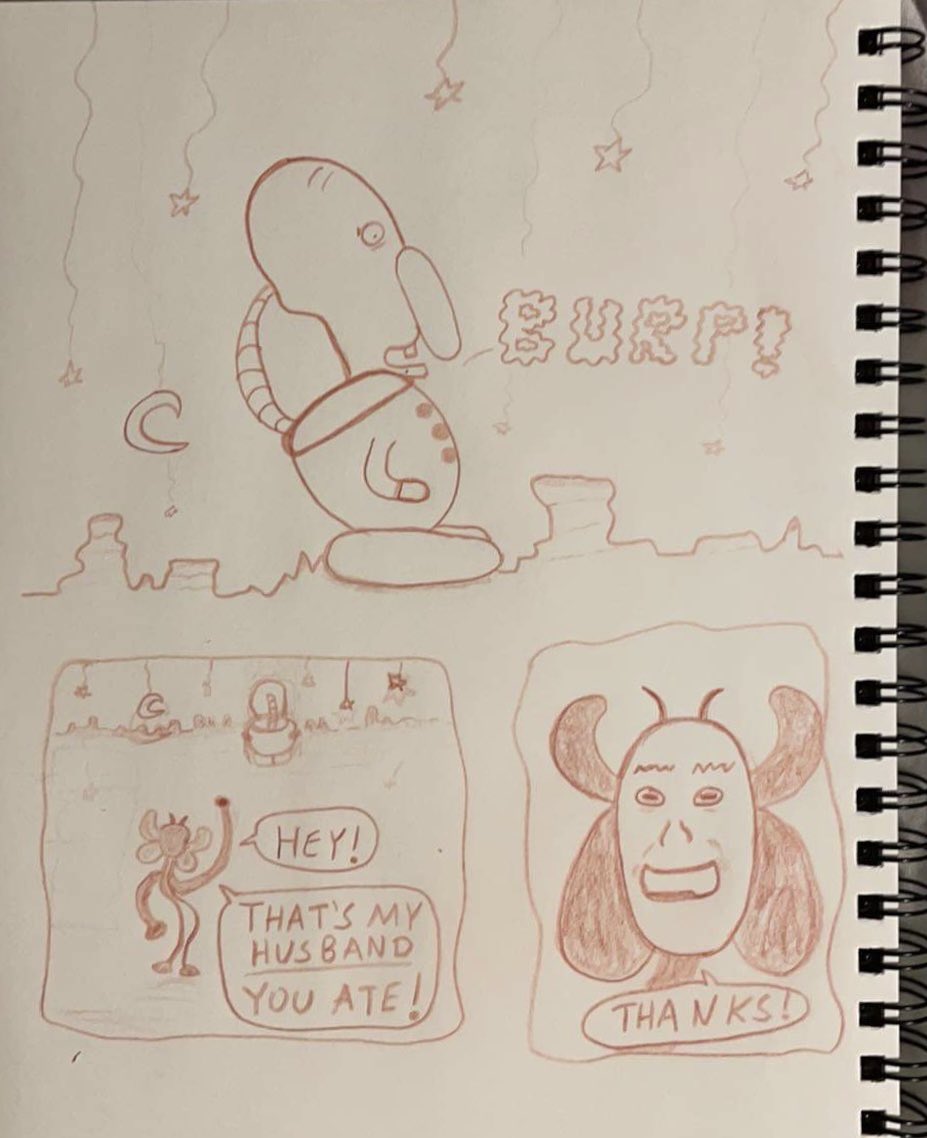 BURP!
HEY!
THAT'S MY
HUSBAND
YOU ATE!
THANKS!